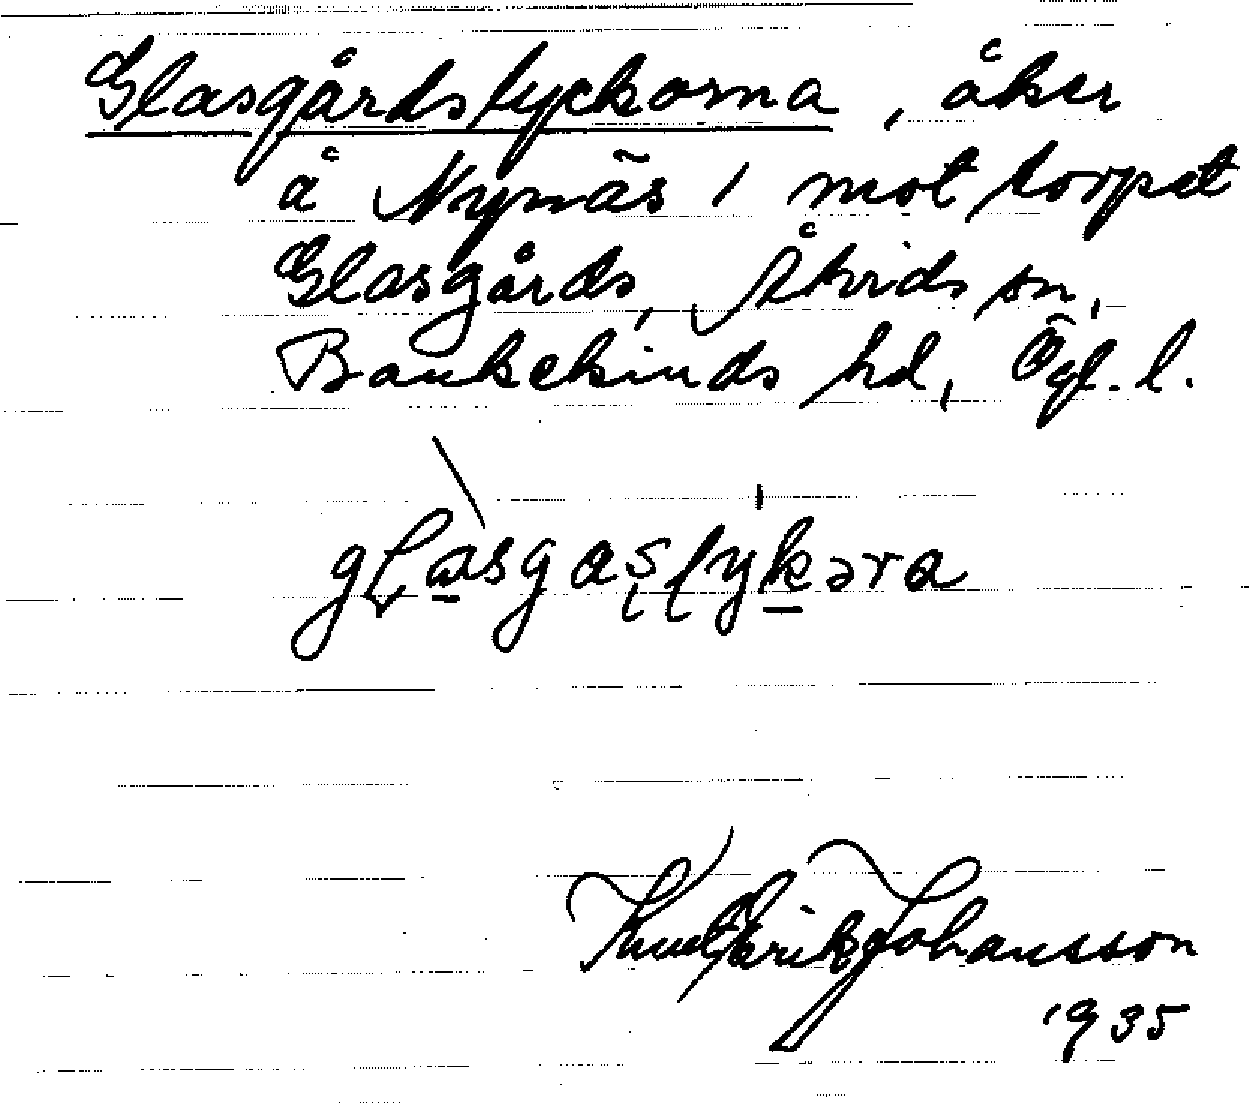 Glasgårdslyckorna, åker
å Nynäs / mot torpet
Glasgårds, Åtvids sn,
Bankekinds hd, Ögl. l.
glasgaslykəra
Knut Erik Johansson
1935